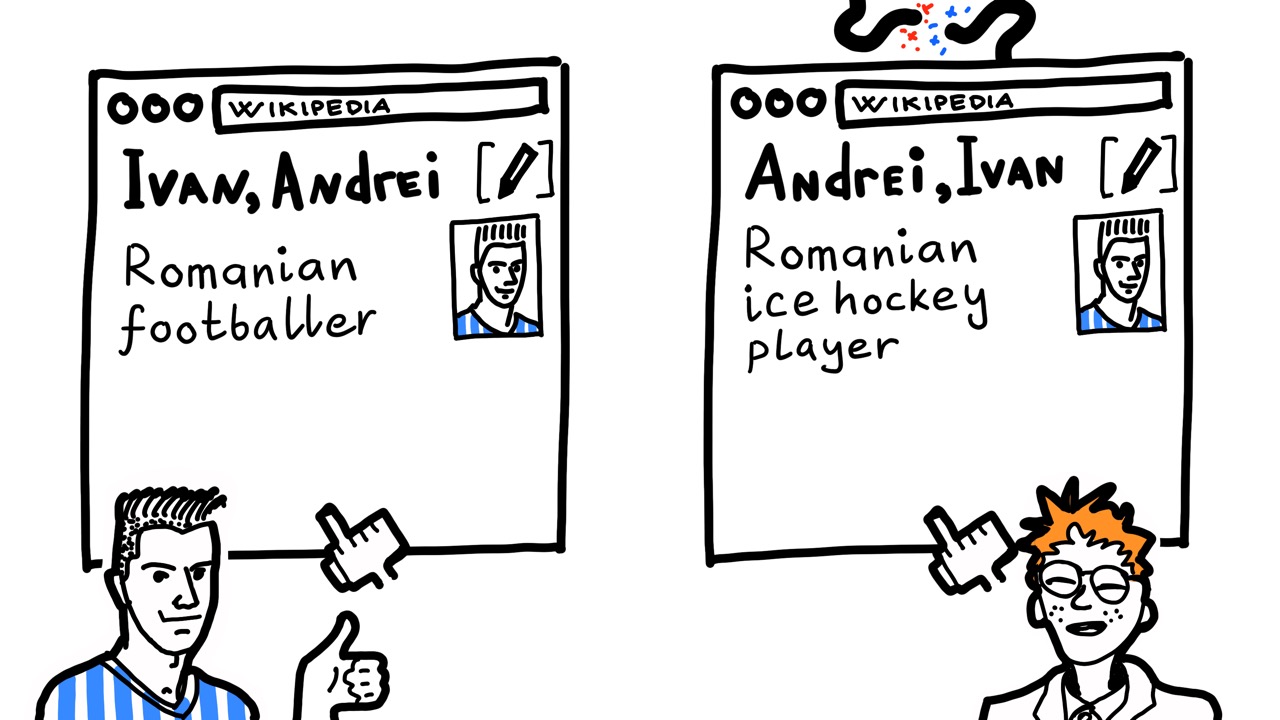 WIKIPEDIA
Ivan, Andrei
Romanian
footballer
WIKIPEDIA
Andrei, Ivan
Romanian
ice hockey
player